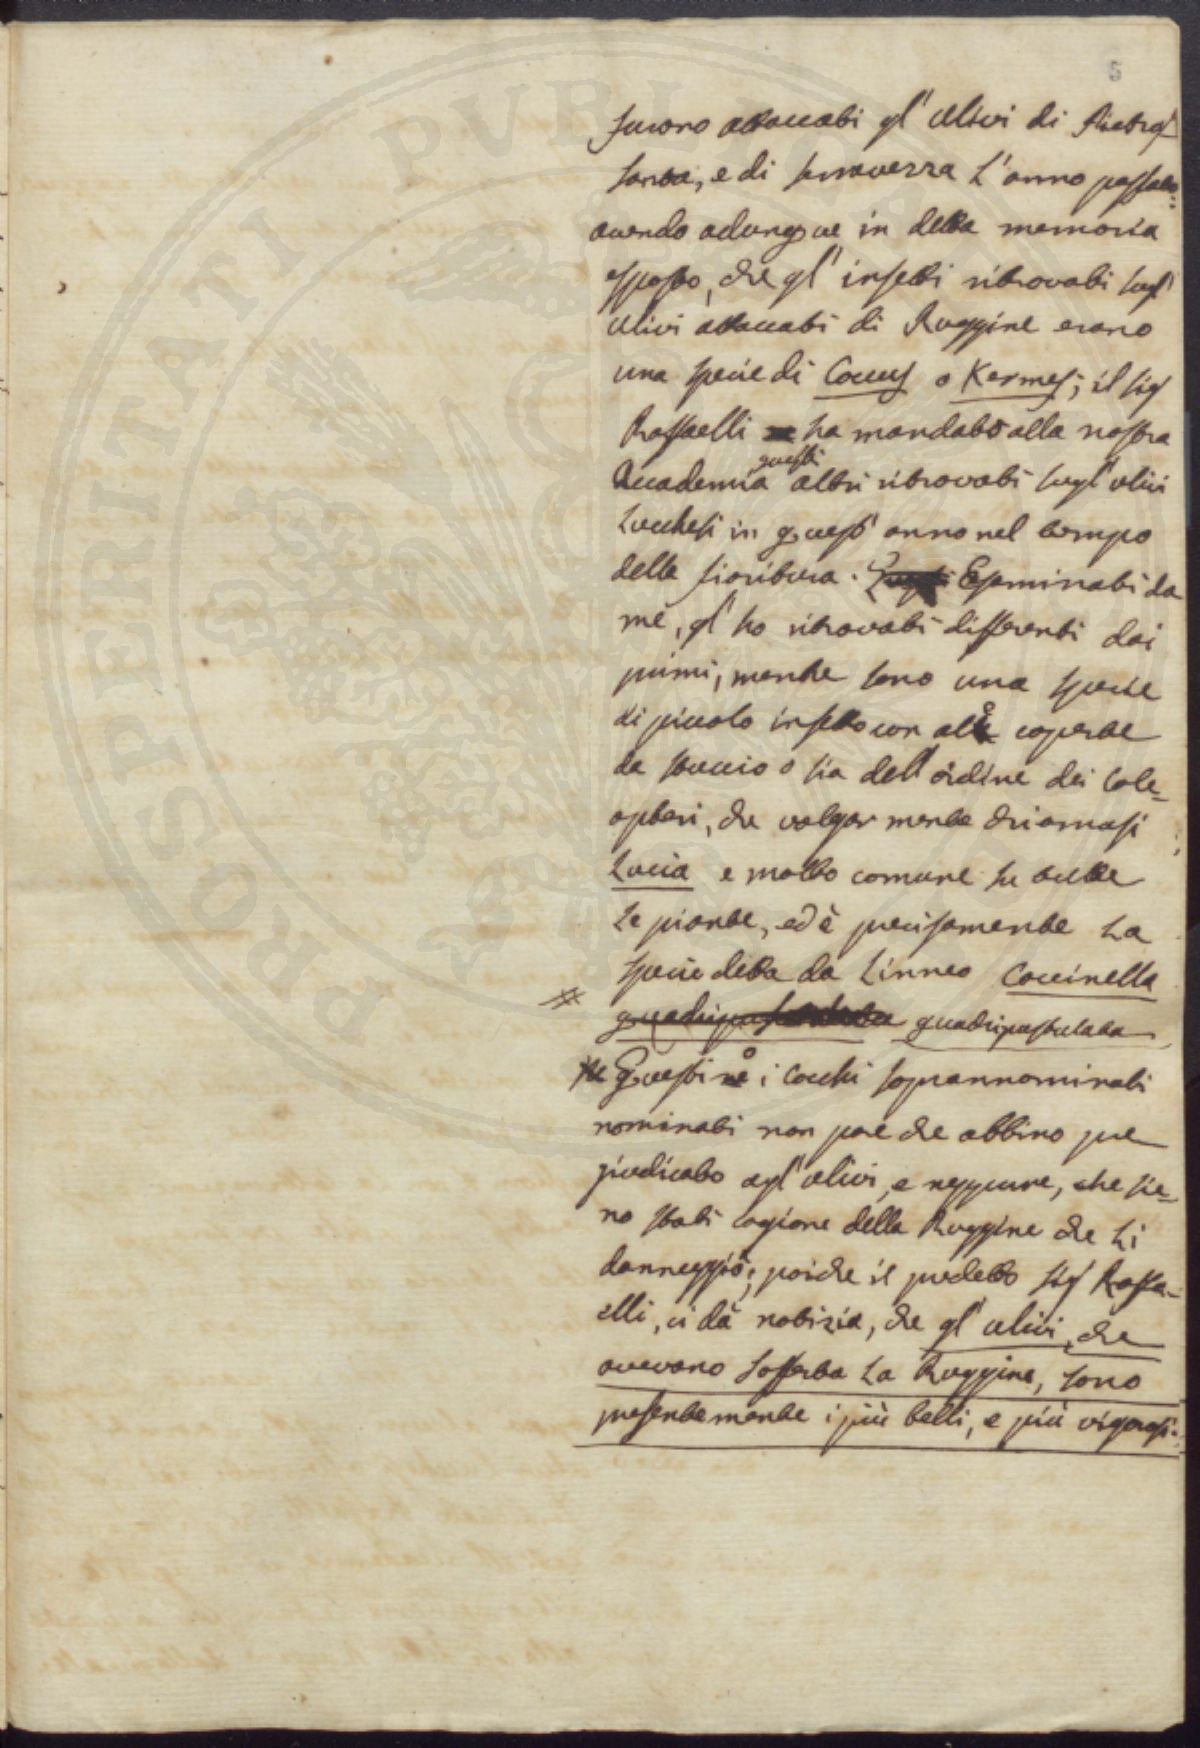 5
furono attaccati gl' Ulivi di Pietra
Santa, e di Serravezza l'anno passato:
avendo adunque in detta memoria
esposto, che gl' insetti ritrovati sugl'
ulivi attaccati di Ruggine erano
una specie di Coccus o Kermes; il Sig
Raffaelli ha mandato alla nostra
questi
Accademia altri ritrovati sugl' ulivi
Lucchesi in quest' anno nel tempo
della fioritura. Esaminati da
me, gl' ho ritrovati differenti dai
primi, mentre sono una specie
di piccolo insetto con ali coperte
da stuccio o sia dell' ordine dei Cole=
opteri, che volgarmente chiamasi
Lucia e molto comune su tutte
le piante, ed è precisamente la
specie detta da Linneo Coccinella
quadripustulata
Questi i Cocchi soprannominati
nominati non pare che abbino pre
giudicato agl' ulivi, e neppure, che sie=
no stati cagione della Ruggine che li
danneggiò; poiche il predetto Sig Raffa=
elli, ci dà notizia, che gl' ulivi, che
avevano sofferta la Ruggine, sono
presentemente i più belli, e più vigorosi.
PROSPERITATI PVBLICAE